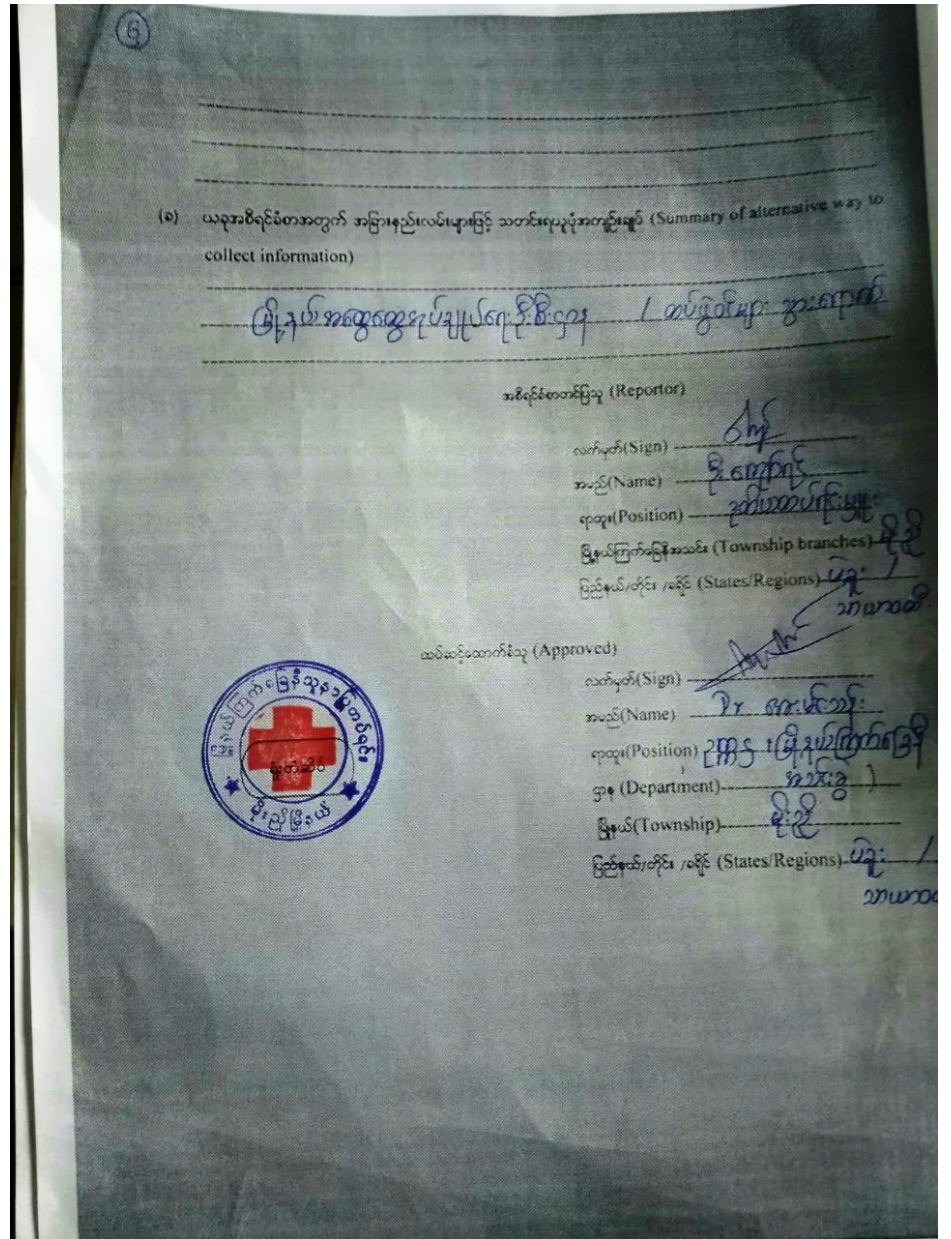 ၆
(၈) ယခုအစီရင်ခံစာအတွက် အခြားနည်းလမ်းများဖြင့် သတင်းရယူပုံအကျဉ်းချုပ် (Summary of alternative way to
collect information)
မြို့နယ်အထွေထွေအုပ်ချုပ်ရေးဦးစီးဌာန / တပ်ဖွဲ့ဝင်များ သွားရောက်
အစီရင်ခံစာတင်ပြသူ (Reportor)
လက်မှတ်(Sign)
အမည်(Name) ဦးကျော်ရင်
ရာထူး(Position) ဒုတိယတပ်ရင်းမှူး
မြို့နယ်ကြက်ခြေနီအသင်း (Township branches) မိုးညို
ပြည်နယ်/တိုင်း /ခရိုင် (States/Regions) ပဲခူး /
သာယာဝတီ
ထပ်ဆင့်ထောက်ခံသူ (Approved)
လက်မှတ်(Sign)
အမည်(Name) Dr အေးမင်းသန်း
ရာထူး(Position) ဥက္ကဋ္ဌ (မြို့နယ်ကြက်ခြေနီ
ဌာန (Department) အသင်းခွဲ )
မြို့နယ်(Township) မိုးညို
ပြည်နယ်/တိုင်း /ခရိုင် (States/Regions) ပဲခူး /
သာယာဝတီ
မြို့နယ်ကြက်ခြေနီသူနာပြုတပ်ရင်း
ရုံးတံဆိပ်
မိုးညိုမြို့နယ်